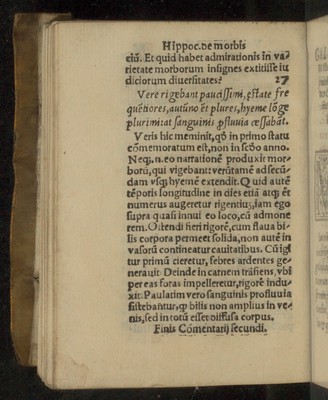 Hippoc. de morbis
eiū. Et quid habet admirationis in va⸗
rietate morborum insignes extitisse iu
diciorum diuersitates? 27
Vere rigebant paucissimi, ęstate fre
quētiores, autūno ēt plures, hyeme lōge
plurimi: at sanguinis ꝓfluuia cessabāt.
Veris hic meminit, qđ in primo statu
cōmemoratum est, non in scđo anno.
Neqȝ. n. eo narrationē produxit mor⸗
borū, qui vigebant: verūtamē ad secū⸗
dam vsqȝ hyemē extendit. Quid autē
tēporis longitudine in dies etiā atqȝ ēt
numerus augeretur rigentiū, iam ego
supra quasi innui eo loco, cū admone
rem. Ostendi fieri rigorē, cum flaua bi⸗
lis corpora permeet solida, non autē in
vasorū contineatur cauitatibus. Cū igi
tur primū cieretur, febres ardentes ge⸗
nerauit. Deinde in carnem trāsiens, vbi
per eas foras impelleretur, rigorē indu⸗
xit. Paulatim vero sanguinis profluuia
sistebātur, ꝙ bilis non amplius in ve⸗
nis, sed in totū esset diffusa corpus.
Finis Cōmentarij secundi.